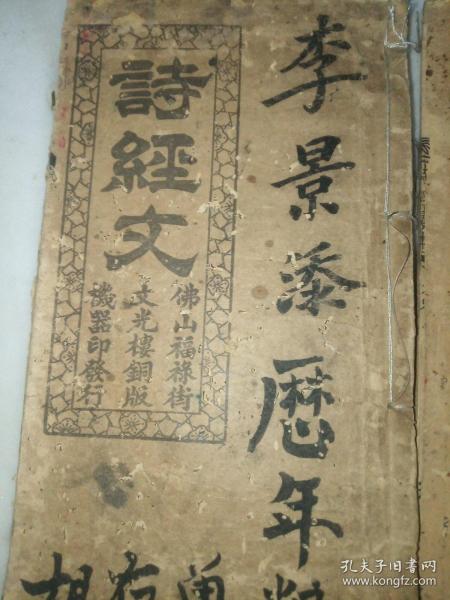 李景添歷年
詩經文
佛山福祿街
文光樓銅版
機器印發行
孔夫子旧书网
www.kongfz.com